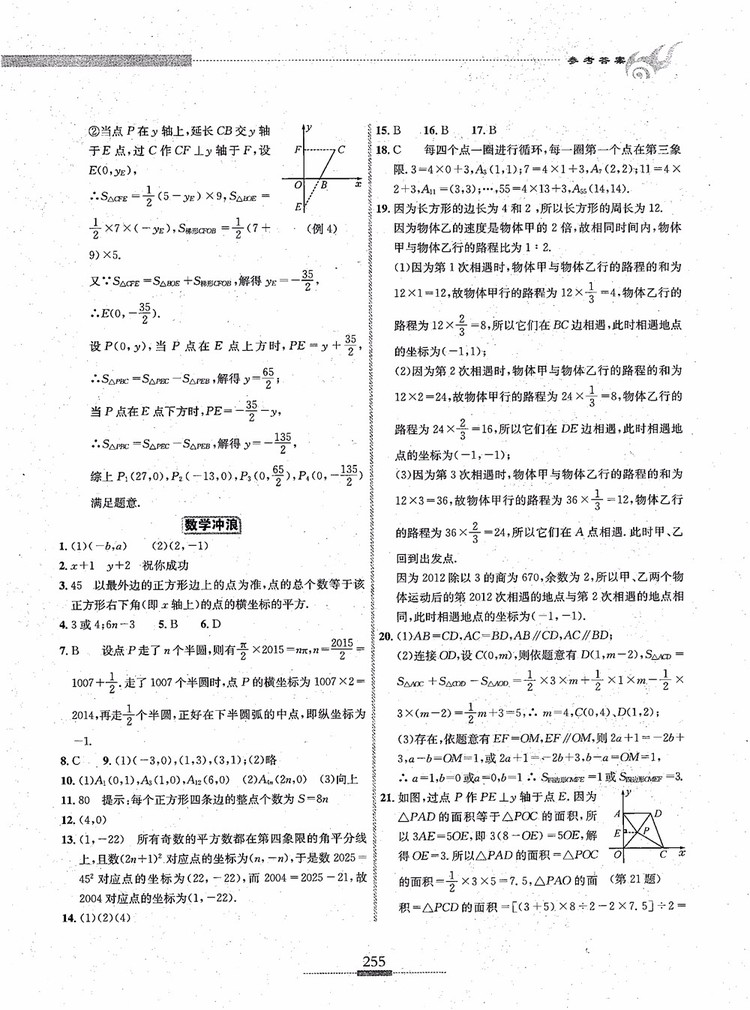 参考答案
②当点P在y轴上,延长CB交y轴
于E点,过C作CF⊥y轴于F,设
E(0,yE),
∴S△CFE=1/2(5-yE)×9,S△BOE=
1/2×7×(-yE),S梯形CFOB=1/2(7+
9)×5.
又∵S△CFE=S△BOE+S梯形CFOB,解得yE=-35/2,
∴E(0,-35/2).
设P(0,y),当P点在E点上方时,PE=y+35/2,
∴S△PBC=S△PEC-S△PEB,解得y=65/2;
当P点在E点下方时,PE=-35/2-y,
∴S△PBC=S△PEC-S△PEB,解得y=-135/2,
综上P₁(27,0),P₂(-13,0),P₃(0,65/2),P₄(0,-135/2)
满足题意.
y
F
C
O
B
x
E
(例4)
数学冲浪
1.(1)(-b,a) (2)(2,-1)
2.x+1 y+2 祝你成功
3.45 以最外边的正方形边上的点为准,点的总个数等于该
正方形右下角(即x轴上)的点的横坐标的平方.
4.3或4;6n-3 5.B 6.D
7.B 设点P走了n个半圆,则有π/2×2015=nπ,n=2015/2=
1007+1/2.走了1007个半圆时,点P的横坐标为1007×2=
2014,再走1/2个半圆,正好在下半圆弧的中点,即纵坐标为
-1.
8.C 9.(1)(-3,0),(1,3),(3,1);(2)略
10.(1)A₄(0,1),A₈(1,0),A₁₂(6,0) (2)A₄ₙ(2n,0) (3)向上
11.80 提示:每个正方形四条边的整点个数为S=8n
12.(4,0)
13.(1,-22) 所有奇数的平方数都在第四象限的角平分线
上,且数(2n+1)²对应点的坐标为(n,-n),于是数2025=
45²对应点的坐标为(22,-22),而2004=2025-21,故
2004对应点的坐标为(1,-22).
14.(1)(2)(4)
15.B 16.B 17.B
18.C 每四个点一圈进行循环,每一圈第一个点在第三象
限.3=4×0+3,A₃(1,1);7=4×1+3,A₇(2,2);11=4×
2+3,A₁₁=(3,3);…,55=4×13+3,A₅₅(14,14).
19.因为长方形的边长为4和2,所以长方形的周长为12.
因为物体乙的速度是物体甲的2倍,故相同时间内,物体
甲与物体乙行的路程比为1∶2.
(1)因为第1次相遇时,物体甲与物体乙行的路程的和为
12×1=12,故物体甲行的路程为12×1/3=4,物体乙行的
路程为12×2/3=8,所以它们在BC边相遇,此时相遇地点
的坐标为(-1,1);
(2)因为第2次相遇时,物体甲与物体乙行的路程的和为
12×2=24,故物体甲行的路程为24×1/3=8,物体乙行的
路程为24×2/3=16,所以它们在DE边相遇,此时相遇地
点的坐标为(-1,-1);
(3)因为第3次相遇时,物体甲与物体乙行的路程的和为
12×3=36,故物体甲行的路程为36×1/3=12,物体乙行
的路程为36×2/3=24,所以它们在A点相遇.此时甲、乙
回到出发点.
因为2012除以3的商为670,余数为2,所以甲、乙两个物
体运动后的第2012次相遇的地点与第2次相遇的地点相
同,此时相遇地点的坐标为(-1,-1).
20.(1)AB=CD,AC=BD,AB∥CD,AC∥BD;
(2)连接OD,设C(0,m),则依题意有D(1,m-2),S△ACD=
S△AOC+S△COD-S△AOD=1/2×3×m+1/2×1×m-1/2×
3×(m-2)=1/2m+3=5,∴m=4,C(0,4)、D(1,2);
(3)存在,依题意有EF=OM,EF∥OM,则2a+1=-2b+
3,a-b=OM=1,或2a+1=-2b+3,b-a=OM=1,
∴a=1,b=0或a=0,b=1∴S四边形OMFE=1或S四边形OMEF=3.
21.如图,过点P作PE⊥y轴于点E.因为
△PAD的面积等于△POC的面积,所
以3AE=5OE,即3(8-OE)=5OE,解
得OE=3.所以△PAD的面积=△POC
的面积=1/2×3×5=7.5,△PAO的面
积=△PCD的面积=[(3+5)×8÷2-2×7.5]÷2=
y
A
D
E
P
O
C
x
(第21题)
255